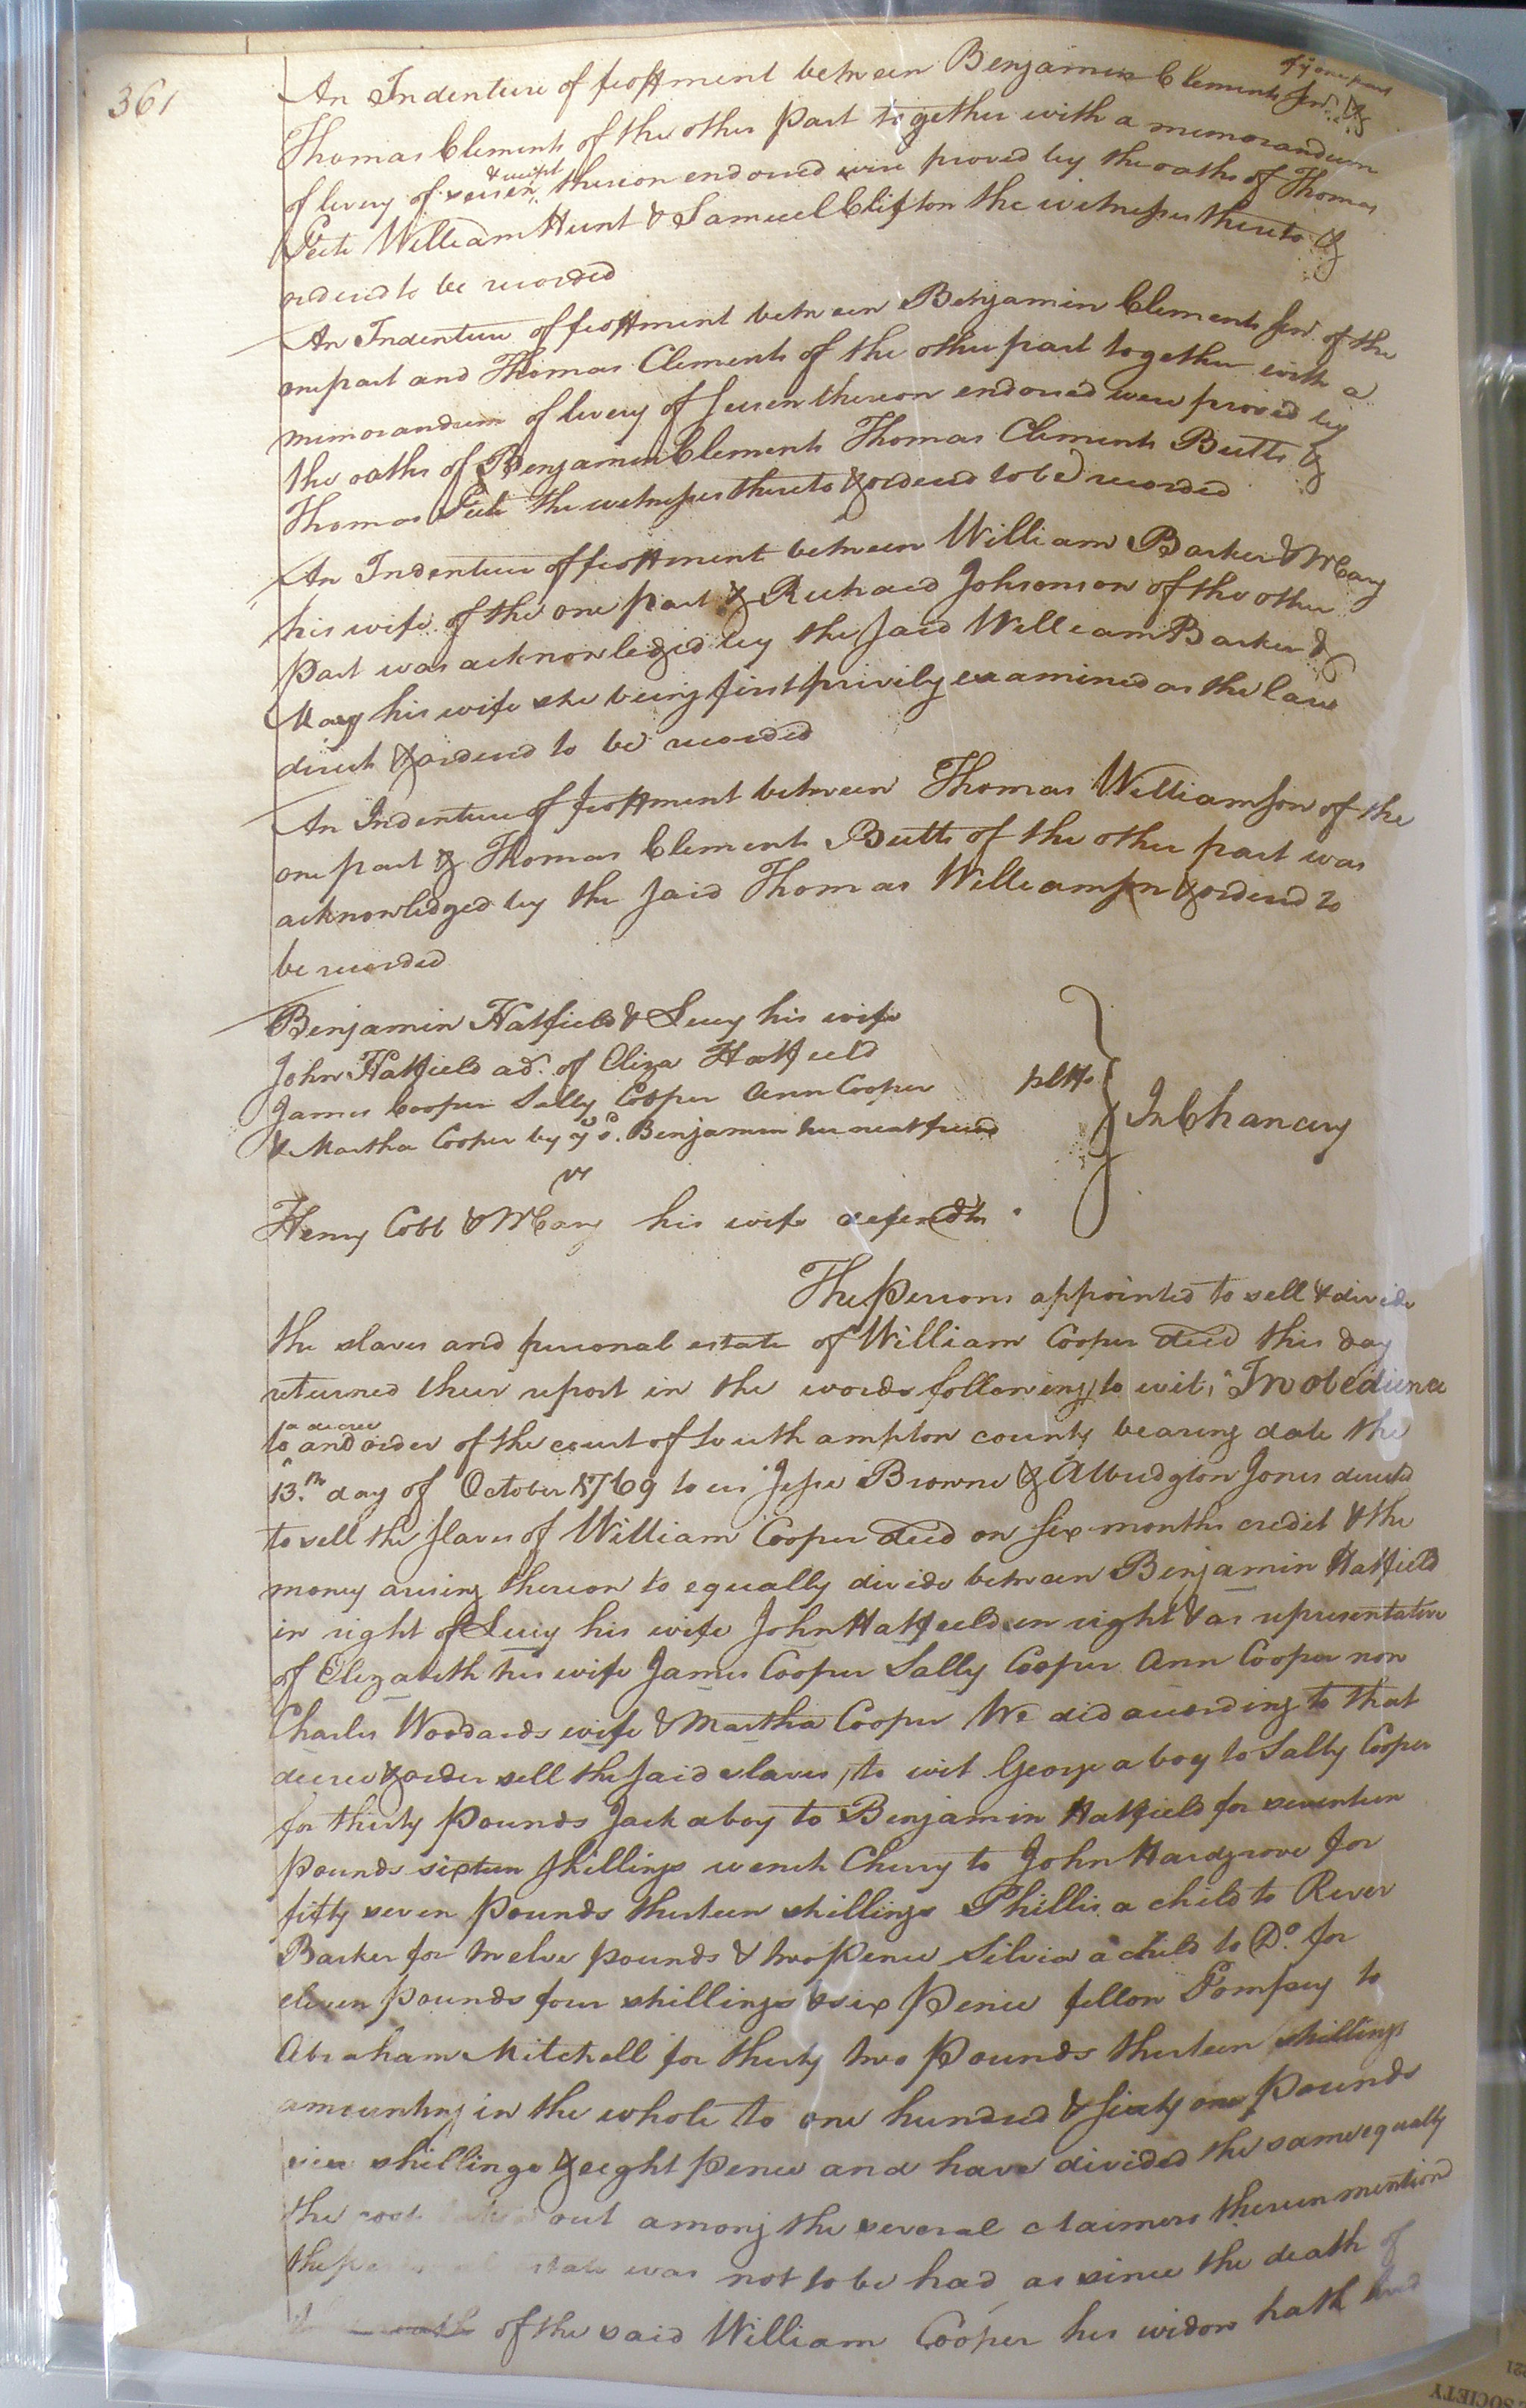 361
An Indenture of feoffment between Benjamin Clements Senr. of ye one part &
Thomas Clements of the other part together with a memorandum
of livery of seisen & receipt thereon endorsed were proved by the oaths of Thomas
Peete William Hunt & Samuel Clifton the witnesses thereto &
ordered to be recorded
An Indenture of feoffment between Benjamin Clements Senr. of the
one part and Thomas Clements of the other part together with a
memorandum of livery of seisen thereon endorsed were proved by
the oaths of Benjamin Clements Thomas Clements Butts &
Thomas Peete the witnesses thereto & ordered to be recorded
An Indenture of feoffment between William Barker & Mary
his wife of the one part & Richard Johnson of the other
part was acknowledged by the said William Barker &
Mary his wife she being first privily examined as the law
direct & ordered to be recorded
An Indenture of feoffment between Thomas Williamson of the
one part & Thomas Clements Butts of the other part was
acknowledged by the said Thomas Williamson & ordered to
be recorded
Benjamin Hatfield & Lucy his wife
John Hatfield ad. of Eliza Hatfield
James Cooper Sally Cooper Ann Cooper pltfs
& Martha Cooper by ye sd. Benjamin her next friend
In Chancery
vs
Henry Cobb & Mary his wife defendts
The Persons appointed to sell & divide
the slaves and personal estate of William Cooper decd this day
returned their report in the words following, to wit, "In obedience
to a decree and order of the court of Southampton county bearing date the
13.th day of October 1769 to us Jesse Browne & Albridgton Jones directed
to sell the slaves of William Cooper decd on six months credit & the
money arising thereon to equally divide between Benjamin Hatfield
in right of Lucy his wife John Hatfield in right & as representative
of Elizabeth his wife James Cooper Sally Cooper Ann Cooper now
Charles Woodards wife & Martha Cooper We did according to that
decree & order sell the said slaves, to wit George a boy to Sally Cooper
for thirty Pounds Jack a boy to Benjamin Hatfield for seventeen
Pounds sixteen shillings wench Cherry to John Hardgrove for
fifty seven Pounds thirteen shillings Phillis a child to River
Barker for twelve pounds & two Pence Silvia a child to Do. for
eleven Pounds four shillings & six Pence fellow Pompey to
Abraham Mitchell for thirty two Pounds thirteen shillings
amounting in the whole to one hundred & sixty one Pounds
shillings & eight Pence and have divided the same equally
the cost out among the several claimers therein mention
the estate was not to be had as since the death of
of the said William Cooper his widow hath
SOCIETY